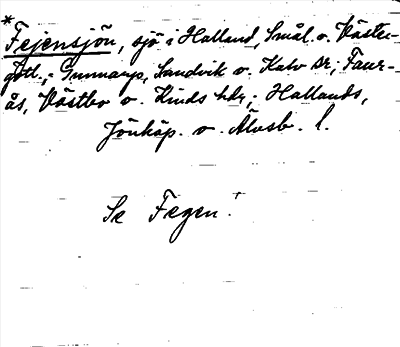 *
Fejensjön, sjö i Halland, Smål. o. Väster-
götl.; Gunnarp, Sandvik o. Kalv sr, Faur-
ås, Västbo o. Kinds hdr; Hallands,
Jönköp. o. Älvsb. l.
Se Fegen!